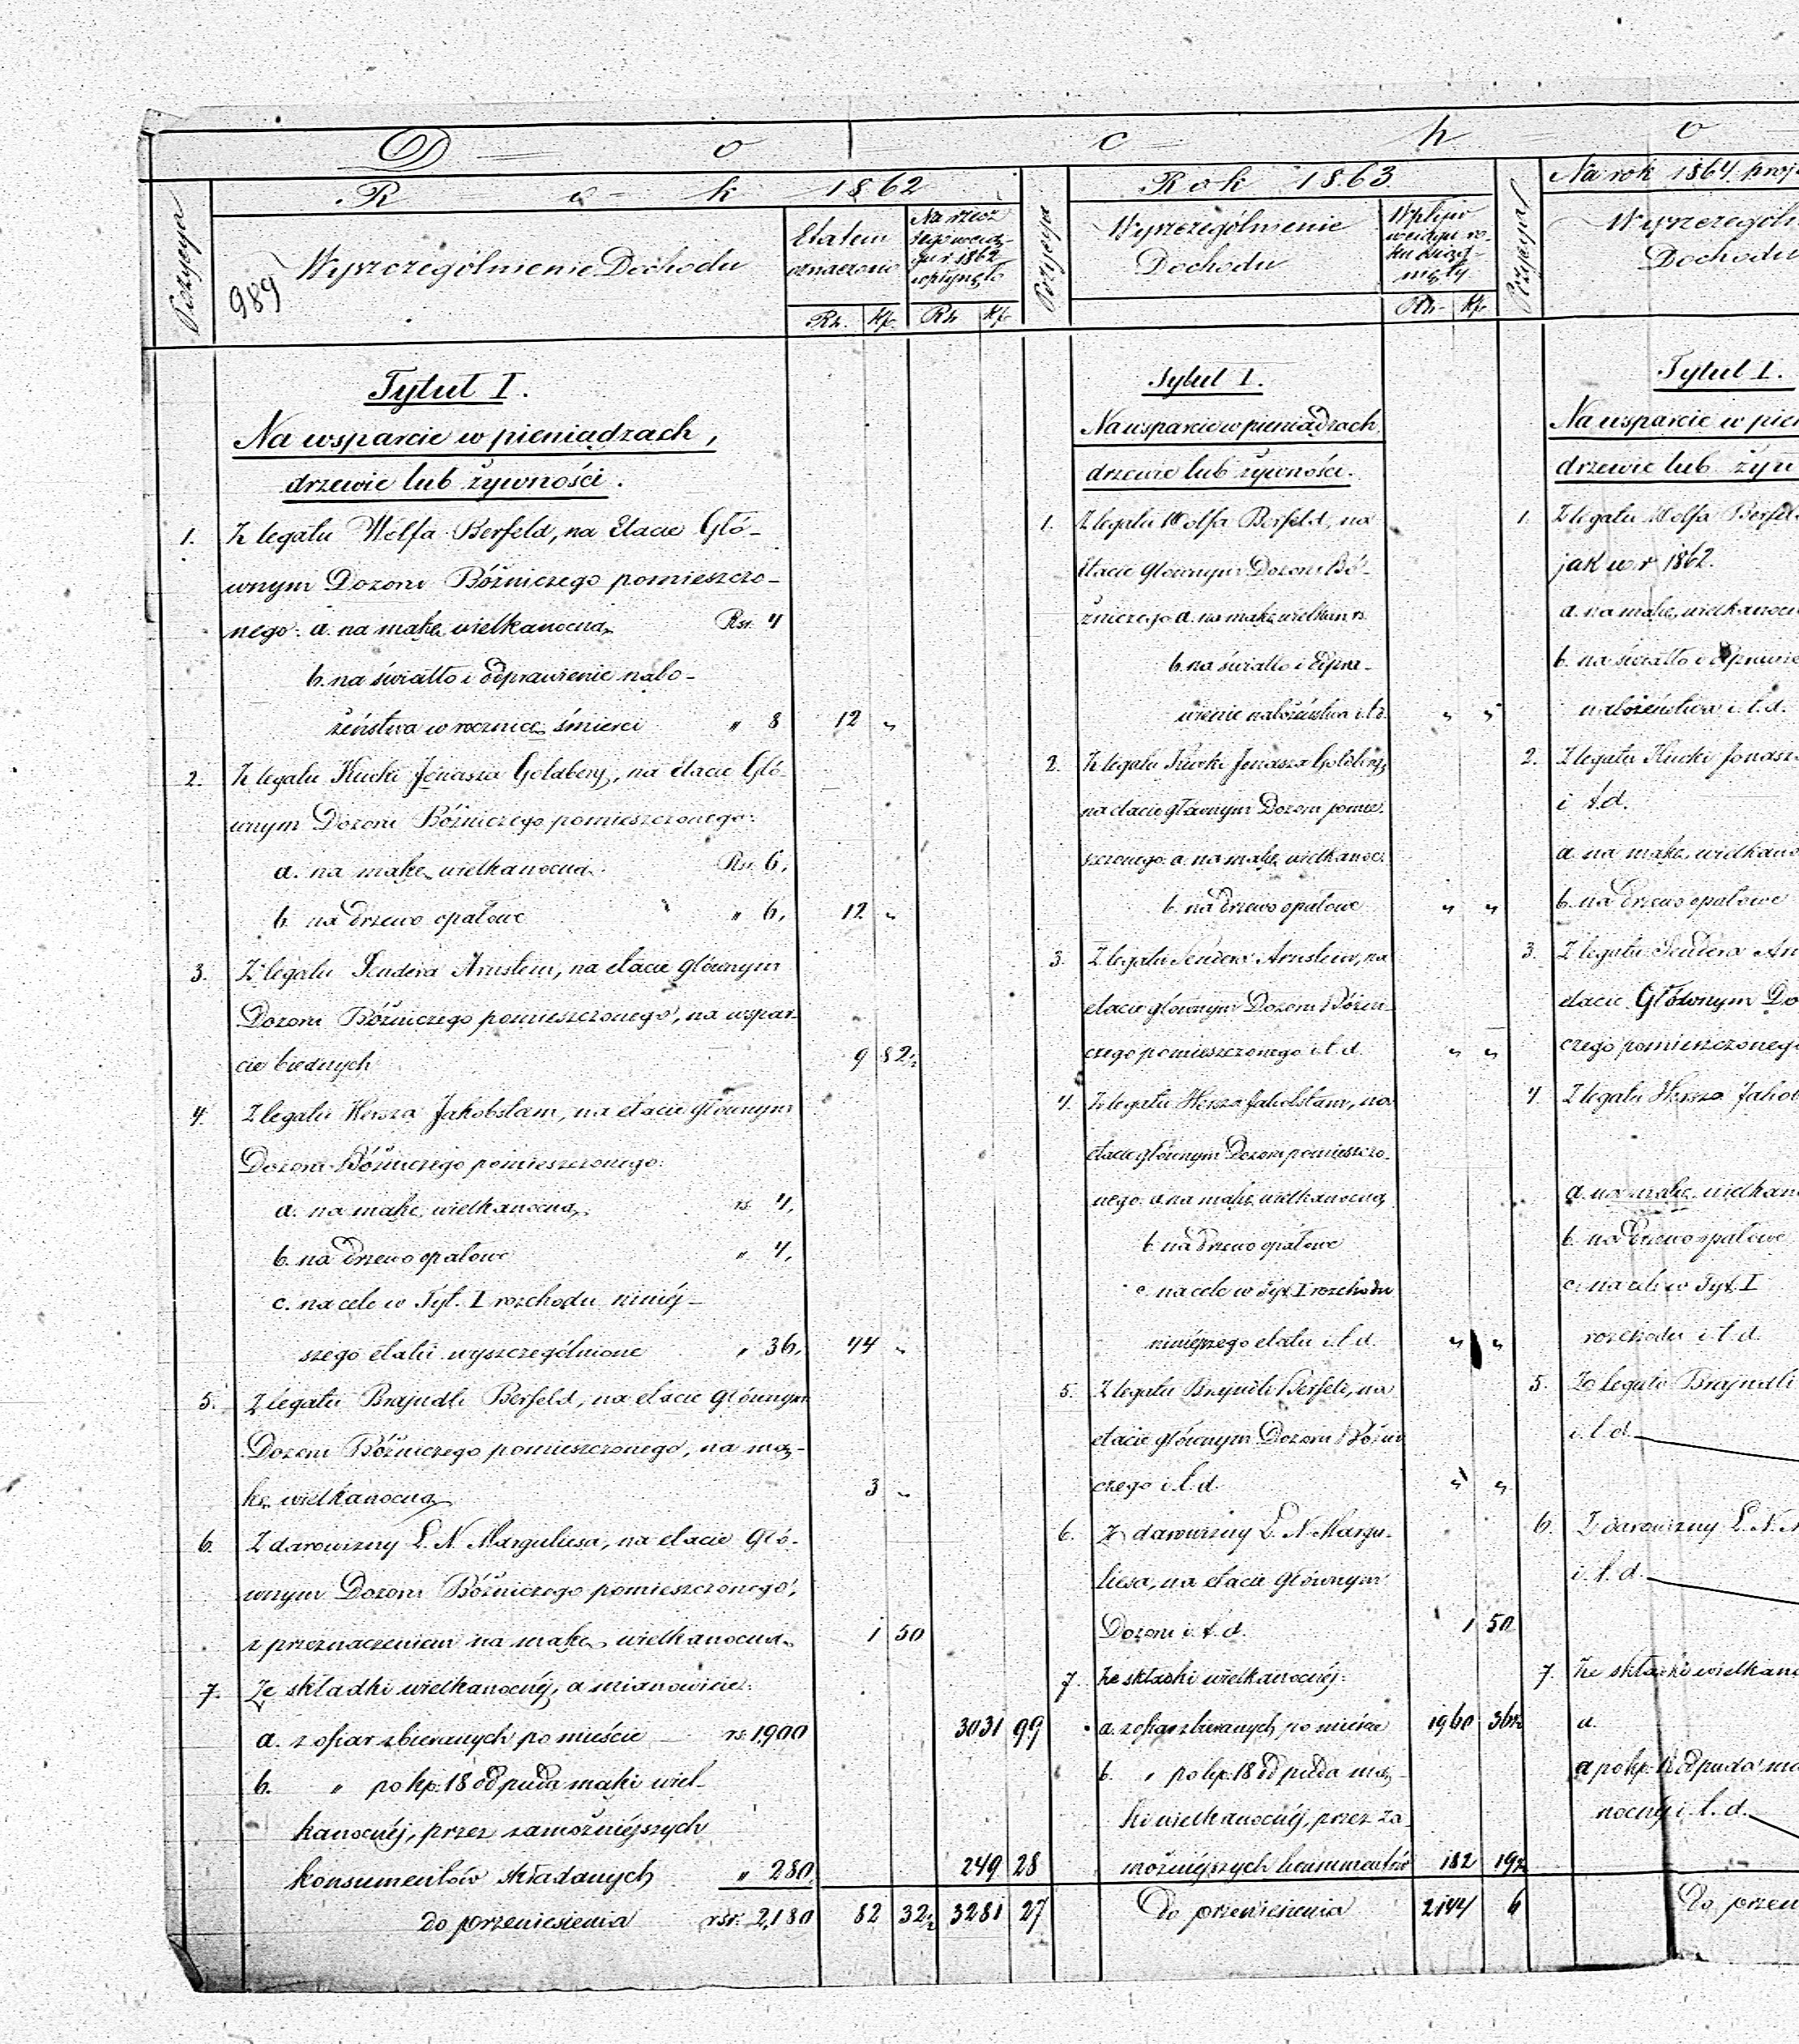 D o c h o
Pozycya
R o k 1862
989
Wyszczególnienie Dochodu
Etatem
oznaczono
Na rzecz
tego
r. 1862
wpłynęło
Rs. Kp. Rs Kp
Tytuł I.
Na wsparcie w pieniądzach,
drzewie lub żywności.
1. Z legatu Wolfa Berfeld, na Etacie Głó-
wnym Dozoru Bóżniczego pomieszczo-
nego: a. na mąkę wielkanocną Rsr. 4
b. na światło i odprawienie nabo-
żeństwa w rocznicę śmierci " 8 12 "
2. Z legatu Kuoki Jonasza Goldberg, na etacie Głó-
wnym Dozoru Bóżniczego pomieszczonego:
a. na mąkę wielkanocną Rsr. 6,
b. na drzewo opałowe " 6, 12 "
3. Z legatu Sendera Arnstein, na etacie Głównym
Dozoru Bóżniczego pomieszczonego, na wspar-
cie biednych 9 82½
4. Z legatu Hersza Jakobstam, na etacie głównym
Dozoru Bóżniczego pomieszczonego:
a. na mąkę wielkanocną rs. 4,
b. na drzewo opałowe " 4,
c. na cele w Tyt. I rozchodu niniéj-
szego etatu wyszczególnione " 36, 44 "
5. Z legatu Brajndli Berfeld, na etacie głównym
Dozoru Bóżniczego pomieszczonego, na mą-
kę wielkanocną 3 "
6. Z darowizny L. N. Marguliesa, na etacie Głó-
wnym Dozoru Bóżniczego pomieszczonego,
z przeznaczeniem na mąkę wielkanocną 1 50
7. Ze składki wielkanocnéj, a mianowicie:
a. z ofiar zbieranych po mieście rs. 1,900 3031 99
b. " po kp. 18 od puda mąki wiel-
kanocnéj, przez zamożniéjszych
konsumentów składanych " 280 249 28
do przeniesienia rsr. 2,180 82 32½ 3281 27
Pozycya
Rok 1863.
Wyszczególnienie
Dochodu
Wpływ
Rs. Kp
Tytuł I.
Na wsparcie w pieniądzach
drzewie lub żywności.
1. Z legatu Wolfa Berfeld, na
Etacie Głównym Dozoru Bó-
żniczego a. na mąkę wielkan
b. na światło i odpra-
wienie nabożeństwa i. t. d. " "
2. Z legatu Kuoki Jonasza Goldberg,
na etacie głównym Dozoru pomie-
szczonego: a. na mąkę wielkanoc.
b. na drzewo opałowe " "
3. Z legatu Sendera Arnstein, na
etacie głównym Dozoru Bóżni-
czego pomieszczonego i. t. d. " "
4. Z legatu Hersza Jakobstam, na
etacie głównym Dozoru pomieszczo-
nego: a. na mąkę wielkanocną
b. na drzewo opałowe
c. na cele w Tyt. I rozchodu
niniéjszego etatu i. t. d. " "
5. Z legatu Brajndli Berfeld, na
etacie głównym Dozoru Bóżni
czego i. t. d. " "
6. Z darowizny L. N. Margu-
liesa, na etacie Głównym
Dozoru i. t. d. 1 50
7. Ze składki wielkanocnéj:
a. z ofiar zbieranych po mieście 1960 36½
b. " po kp. 18 od puda mą-
ki wielkanocnéj, przez za-
możniéjszych konsumentów 182 19½
Do przeniesienia 2144 6
Pozycya
Na rok 1864. proj
Wyszczególn
Dochodu
Tytuł I.
Na wsparcie w pien
drzewie lub żyw
1. Z legatu Wolfa Berfeld
jak w. r 1862.
a. na mąkę wielkanoc
b. na światło i odprawie
nabożeństwa i. t. d.
2. Z legatu Kuoki Jonasz
i t. d.
a. na mąkę wielkano
b. na drzewo opałowe
3. Z legatu Sendera Arn
etacie Głównym Do
czego pomieszczonego
4. Z legatu Hersza Jakob
a. na mąkę wielkan
b. na drzewo opałowe
c. na cele w Tyt. I
rozchodu i. t. d.
5. Z legatu Brajndli
i. t. d.
6. Z darowizny L. N. M
i. t. d.
7. Ze składki wielkano
a.
a po kp. 12 od puda mą
nocnéj i. t. d.
Do przen